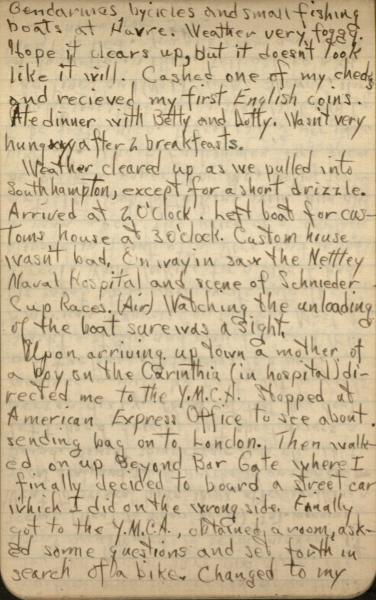 Gendarmes bycicles and small fishing
boats at Havre. Weather very foggy.
Hope it clears up, but it doesn't look
like it will. Cashed one of my cheqs
and recieved my first English coins.
Ate dinner with Betty and Lotty. Wasn't very
hungry after 2 breakfeasts.
Weather cleared up as we pulled into
Southhampton, except for a short drizzle.
Arrived at 2 o'clock. Left boat for cus-
toms house at 3 o'clock. Custom house
wasn't bad. En way in saw the Nettley
Naval Hospital and scene of Schnieder
Cup Races. (Air) Watching the unloading
of the boat sure was a sight.
Upon arriving up town a mother of
a boy on the Carinthia (in hospital) di-
rected me to the Y.M.C.A. Stopped at
American Express Office to see about
sending bag on to London. Then walk-
ed on up Beyond Bar Gate where I
finally decided to board a street car
which I did on the wrong side. Finally
got to the Y.M.C.A., obtained a room, ask-
ed some questions and set forth in
search of a bike. Changed to my